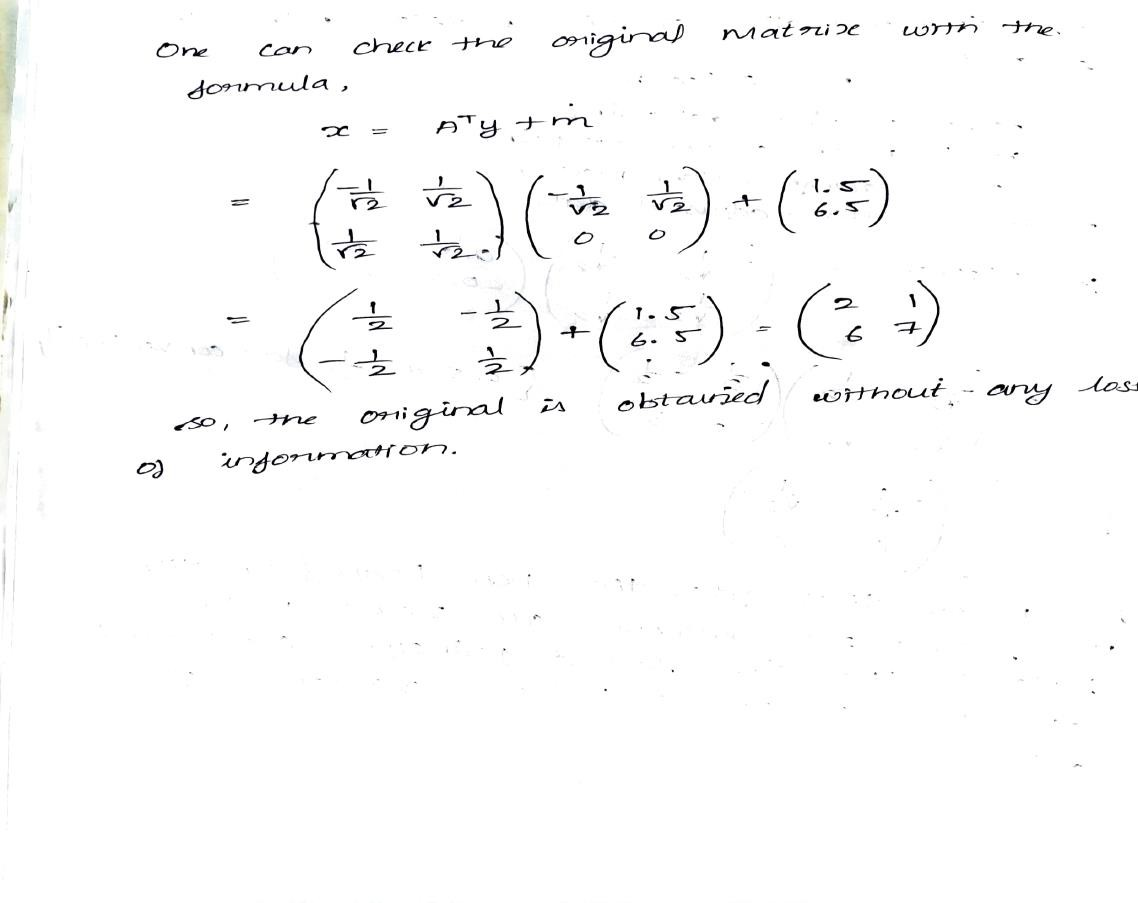 One can check the original matrix with the.
formula,
x = Aᵀy + m
= (-1/√2 1/√2 ; 1/√2 1/√2) (-1/√2 1/√2 ; 0 0) + (1.5 ; 6.5)
= (1/2 -1/2 ; -1/2 1/2) + (1.5 ; 6.5) = (2 1 ; 6 7)
so, the original is obtained without any loss
of information.